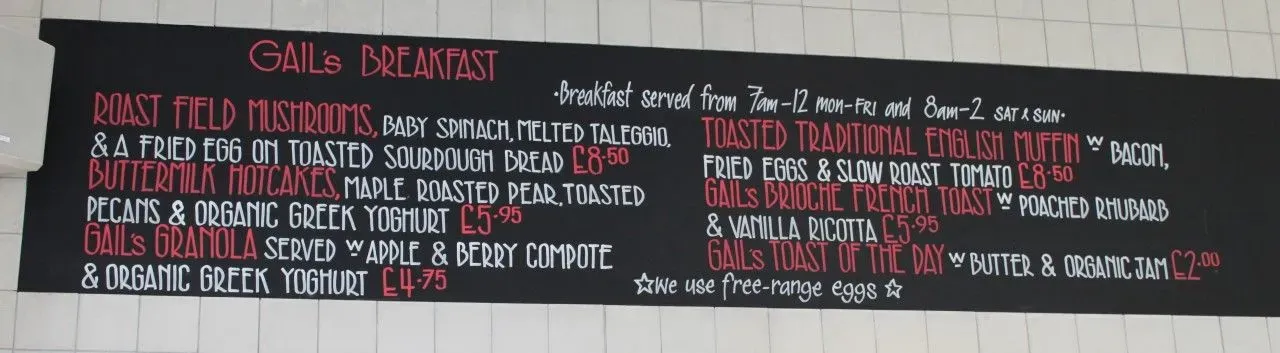 GAIL's BREAKFAST
•Breakfast served from 7am-12 mon-FRI and 8am-2 SAT & SUN•
ROAST FIELD MUSHROOMS, BABY SPINACH, MELTED TALEGGIO,
& A FRIED EGG ON TOASTED SOURDOUGH BREAD £8.50
BUTTERMILK HOTCAKES, MAPLE ROASTED PEAR, TOASTED
PECANS & ORGANIC GREEK YOGHURT £5.95
GAIL's GRANOLA SERVED W APPLE & BERRY COMPOTE
& ORGANIC GREEK YOGHURT £4.75
TOASTED TRADITIONAL ENGLISH MUFFIN W BACON,
FRIED EGGS & SLOW ROAST TOMATO £8.50
GAIL's BRIOCHE FRENCH TOAST W POACHED RHUBARB
& VANILLA RICOTTA £5.95
GAIL's TOAST OF THE DAY W BUTTER & ORGANIC JAM £2.00
☆We use free-range eggs ☆